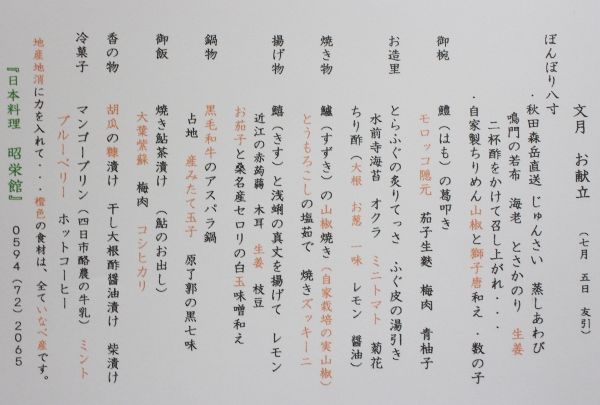 文月 お献立 （七月 五日 友引）
ぼんぼり八寸
・秋田森岳直送 じゅんさい 蒸しあわび
鳴門の若布 海老 とさかのり 生姜
二杯酢をかけて召し上がれ・・・
・自家製ちりめん山椒と獅子唐和え ・数の子
御椀 鱧（はも）の葛叩き
モロッコ隠元 茄子生麩 梅肉 青柚子
お造里 とらふぐの炙りてっさ ふぐ皮の湯引き
水前寺海苔 オクラ ミニトマト 菊花
ちり酢（大根 お葱 一味 レモン 醤油）
焼き物 鱸（すずき）の山椒焼き（自家栽培の実山椒）
とうもろこしの塩茹で 焼きズッキーニ
揚げ物 鱚（きす）と浅蜊の真丈を揚げて レモン
近江の赤蒟蒻 木耳 生姜 枝豆
お茄子と桑名産セロリの白玉味噌和え
鍋物 黒毛和牛のアスパラ鍋
占地 産みたて玉子 原了郭の黒七味
御飯 焼き鮎茶漬け （鮎のお出し）
大葉紫蘇 梅肉 コシヒカリ
香の物 胡瓜の糠漬け 干し大根酢醤油漬け 柴漬け
冷菓子 マンゴープリン（四日市酪農の牛乳）ミント
ブルーベリー ホットコーヒー
地産地消に力を入れて・・・橙色の食材は、全ていなべ産です。
『日本料理 昭栄館』 0594（72）2065